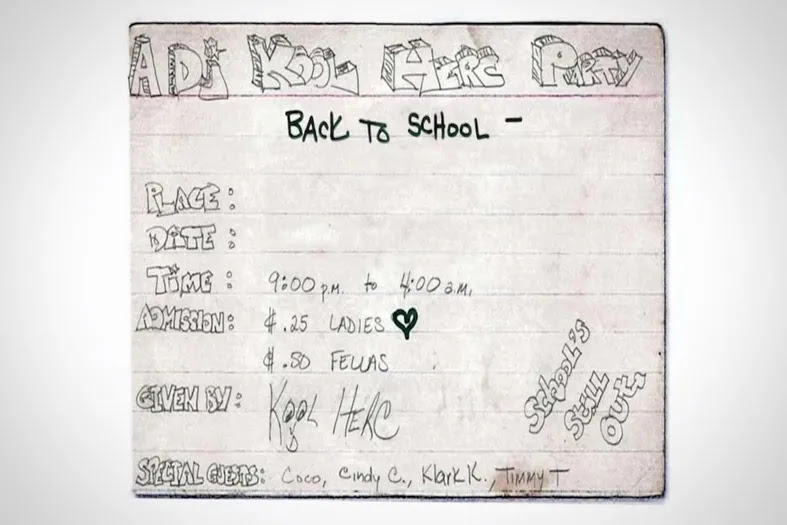 A DJ KOOL HERC PARTY
BACK TO SCHOOL -
PLACE:
DATE:
TIME: 9:00 p.m. to 4:00 a.m.
ADMISSION: $.25 LADIES ♥
$.50 FELLAS
GIVEN BY: KOOL HERC
SCHOOL'S
STILL
OUT.
SPECIAL GUESTS: Coco, Cindy C., Klark K., Timmy T